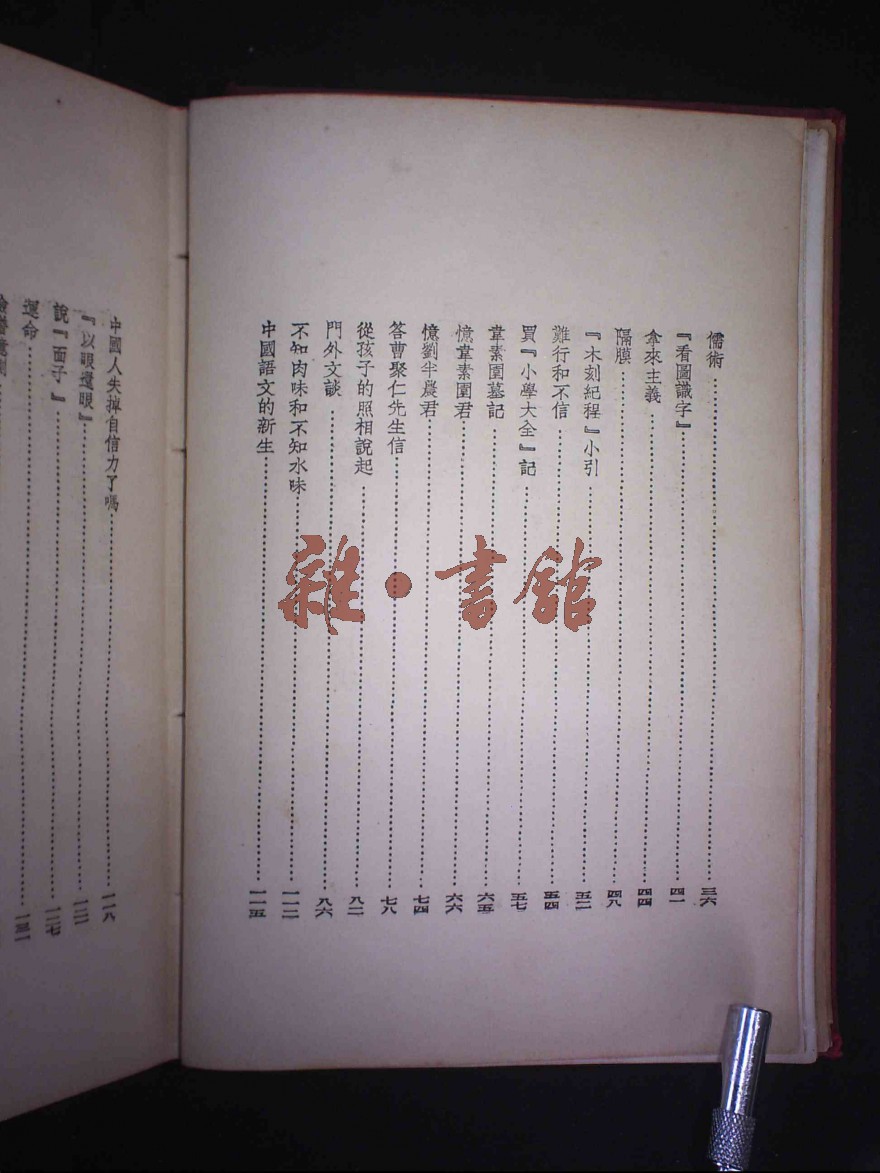 儒術……三六
『看圖識字』……四一
拿來主義……四四
隔膜……四八
『木刻紀程』小引……五二
難行和不信……五四
買『小學大全』記……五七
韋素園墓記……六五
憶韋素園君……六六
憶劉半農君……七四
答曹聚仁先生信……七八
從孩子的照相說起……八二
門外文談……八六
不知肉味和不知水味……一一二
中國語文的新生……一一五
中國人失掉自信力了嗎……一一八
『以眼還眼』……一二一
說『面子』……一二七
運命……一三一
雜·書館